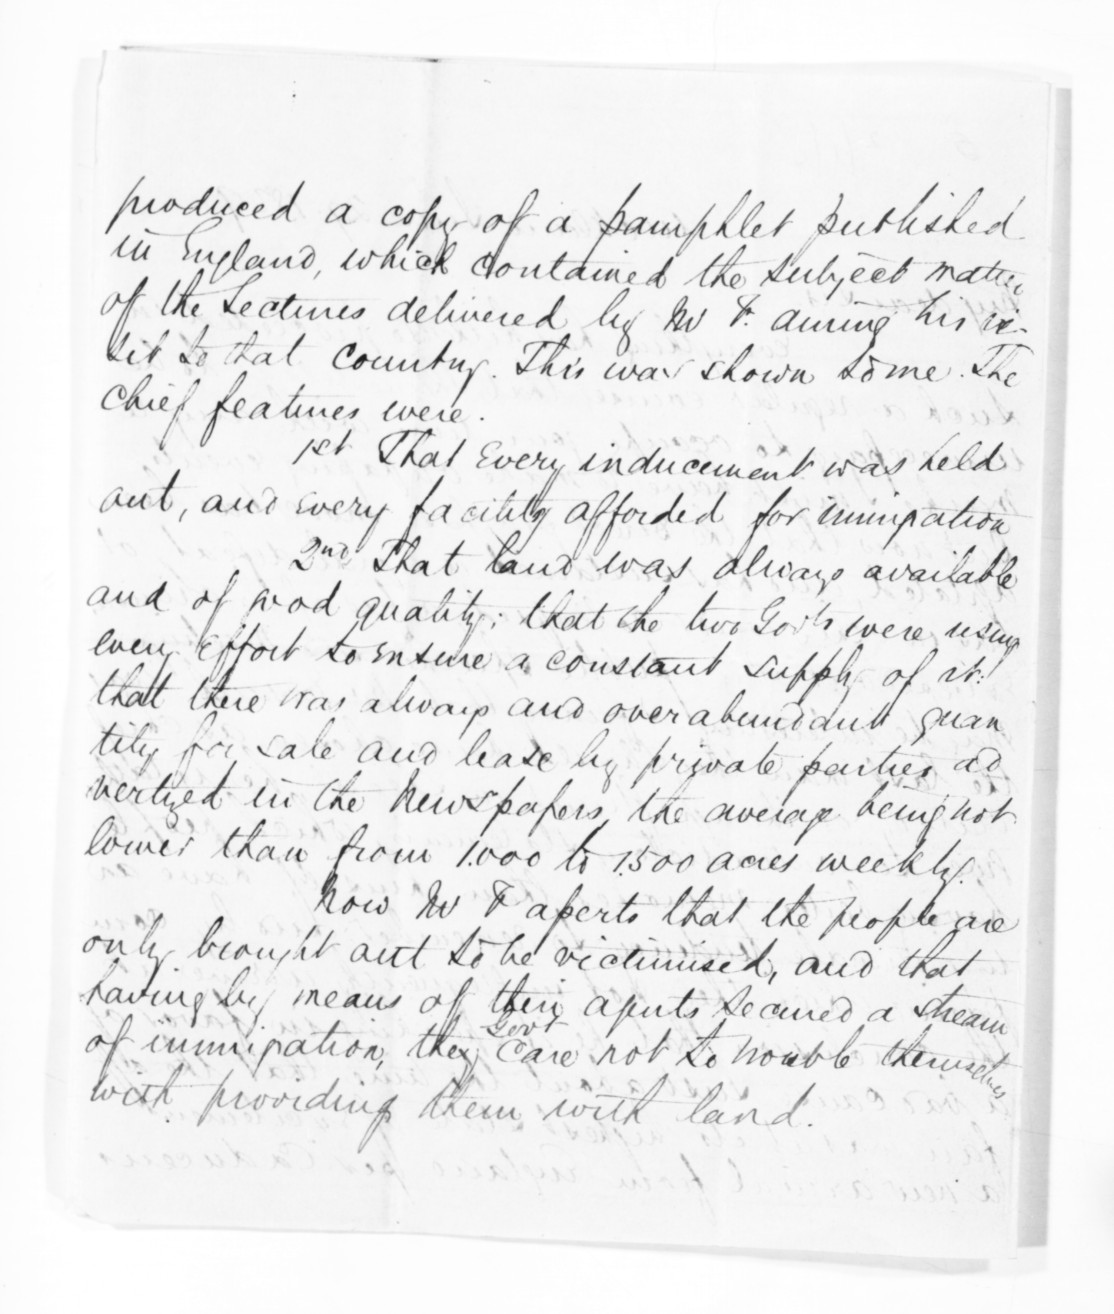 produced a copy of a pamphlet published
in England, which contained the subject matter
of the Lectures delivered by Mr F. during his vi-
sit to that country. This was shown to me. The
chief features were.
1st That every inducement was held
out, and every facility afforded for immigration
2nd That land was always available
and of good quality; that the two Govts were using
every effort to ensure a constant supply of it:
that there was always and overabundant quan
tity for sale and lease by private parties ad
vertized in the Newspapers, the average being not
lower than from 1.000 to 1.500 acres weekly.
Now Mr F asserts that the people are
only brought out to be victimised, and that
having by means of their agents secured a stream
of immigration, they Govt care not to trouble themselves
with providing them with land.